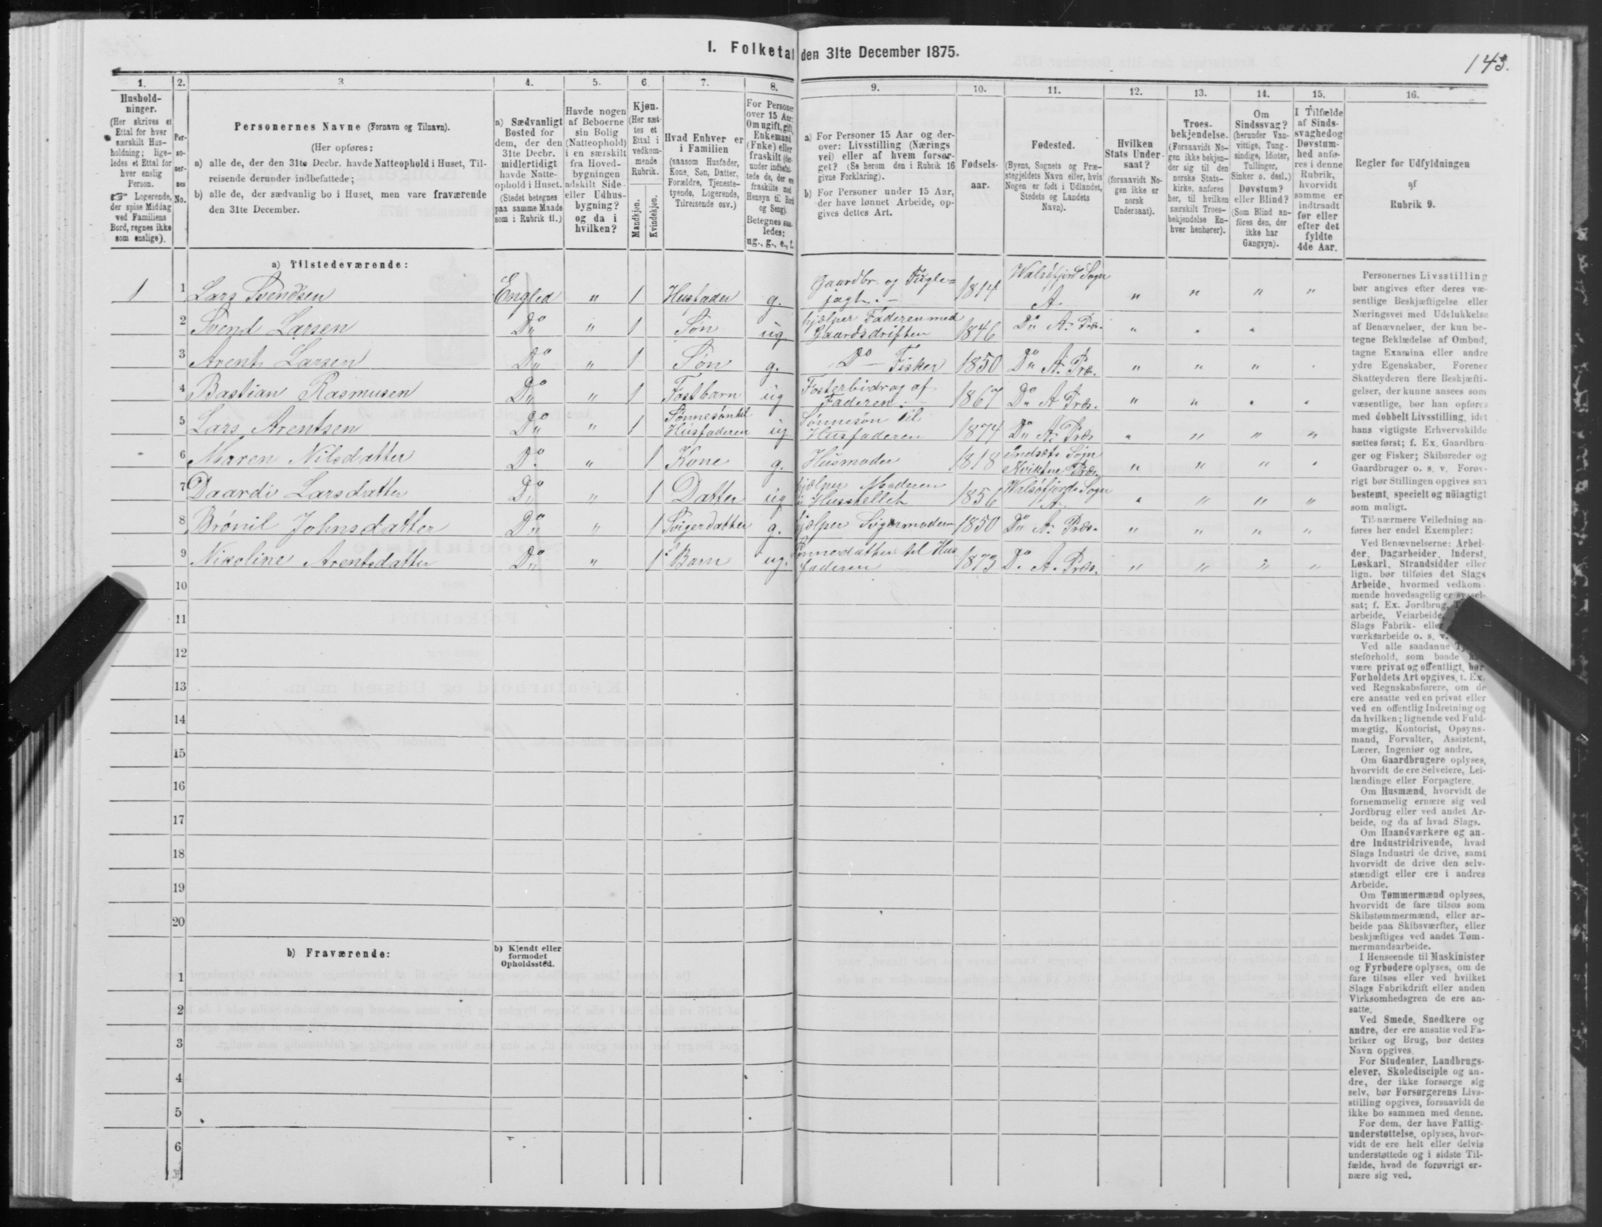 I. Folketal den 31te December 1875.
143.
1.
Hushold-
ninger.
(Her skrives et
Ettal for hver
særskilt Hus-
holdning; lige-
ledes et Ettal for
hver enslig
Person.
☞ Logerende,
der spise Middag
ved Familiens
Bord, regnes ikke
som enslige).
2.
Per-
so-
ner-
nes
No.
3
Personernes Navne (Fornavn og Tilnavn).
(Her opføres:
a) alle de, der den 31te Decbr. havde Natteophold i Huset, Til-
reisende derunder indbefattede;
b) alle de, der sædvanlig bo i Huset, men vare fraværende
den 31te December.
4.
a) Sædvanligt
Bosted for
dem, der den
31te Decbr.
midlertidigt
havde Natte-
ophold i Huset.
(Stedet betegnes
paa samme Maade
som i Rubrik 11.)
5.
Havde nogen
af Beboerne
sin Bolig
(Natteophold)
i en særskilt
fra Hoved-
bygningen
adskilt Side-
eller Udhus-
bygning?
og da i
hvilken?
6.
Kjøn.
(Her sæt-
tes et
Ettal i
vedkom-
mende
Rubrik.
Mandkjøn.
Kvindekjøn.
7.
Hvad Enhver er
i Familien
(saasom Husfader,
Kone, Søn, Datter,
Forældre, Tjeneste-
tyende, Logerende,
Tilreisende osv.)
8.
For Personer
over 15 Aar:
Om ugift, gift,
Enkemand
(Enke) eller
fraskilt
Betegnes saa-
ledes:
ug., g., e., f.
9.
a) For Personer 15 Aar og der-
over: Livsstilling (Nærings
vei) eller af hvem forsør-
get? (Se herom den i Rubrik 16
givne Forklaring).
b) For Personer under 15 Aar,
der have lønnet Arbeide, op-
gives dettes Art.
10.
Fødsels-
aar.
11.
Fødested.
(Byens, Sognets og Præ-
stegjeldets Navn eller, hvis
Nogen er født i Udlandet,
Stedets og Landets
Navn).
12.
Hvilken
Stats Under-
saat?
(forsaavidt No-
gen ikke er
norsk
Undersaat).
13.
Troes-
bekjendelse.
(Forsaavidt No-
gen ikke bekjen-
der sig til den
norske Stats-
kirke, anføres
her, til hvilken
særskilt Troes-
bekjendelse En-
hver henhører).
14.
Om
Sindssvag?
(herunder Van-
vittige, Tung-
sindige, Idioter,
Tullinger,
Sinker o. desl.)
Døvstum?
eller Blind?
(Som Blind an-
føres den, der
ikke har
Gangsyn).
15.
I Tilfælde
af Sinds-
svaghedog
Døvstum-
hed anfø-
res i denne
Rubrik,
hvorvidt
samme er
indtraadt
før eller
efter det
fyldte
4de Aar.
16.
Regler for Udfyldningen
af
Rubrik 9.
a) Tilstedeværende:
1 1 Lars Svendsen Engled „ 1 Husfader g. Gaardbr. og Fugle=
jagt.— 1814 Walsøfjord Sogn
A. „ „ „ „
2 Svend Larsen Do „ 1 Søn ug. hjælper Faderen med
Gaardsdriften 1846 Do A. Præ.
3 Arent Larsen Do „ 1 Søn g. Do — Fisker 1850 Do A. Præ. „ „ „
4 Bastian Rasmusen Do „ 1 Fostbarn ug Fosterbidrag af
Faderen.— 1867 Do A Præs. „ „
5 Lars Arentsen Do „ 1 Sønneson til
Husfaderen ug Sønnesøn til
Husfaderen 1874 Do A. Præs „ „ „
6 Maren Nilsdatter Do „ 1 Kone g. Husmoder 1818 Indset Sogn
Kvikne Præs. „ „ „
7 Daardi Larsdatter Do „ 1 Datter ug hjælper Moderen
i Husstellet 1856 Walsøfjords Sogn
A. „ „ „
8 Brønil Johnsdatter Do „ 1 Svigerdatter g. hjælper Svigermoderen 1850 Do A. Præs. „ „ „ „
9 Nikoline Arentsdatter Do „ 1 Barn ug. Sønnedatter til Hus
faderen 1873 Do. A. Præs. „ „ „ „
10
11
12
13
14
15
16
17
18
19
20
b) Fraværende:
b) Kjendt eller
formodet
Opholdssted.
1
2
3
4
5
6
Personernes Livsstilling
bør angives efter deres væ-
sentlige Beskjæftigelse eller
Næringsvei med Udelukkelse
af Benævnelser, der kun be-
tegne Bekladelse af Ombud,
tagne Examina eller andre
ydre Egenskaber, Forener
Skatteyderen flere Beskjæfti-
gelser, der kunne ansees som
væsentlige, bør han opføres
med dobbelt Livsstilling, idet
hans vigtigste Erhvervskilde
sættes først; f. Ex. Gaardbru-
ger og Fisker; Skibsreder og
Gaardbruger o. s. v. Forøv-
rigt bør Stillingen opgives saa
bestemt, specielt og nøiagtigt
som muligt.
Til nærmere Veiledning an-
føres her endel Exempler:
Ved Benævnelserne: Arbei-
der, Dagarbeider, Inderst,
Løskarl, Strandsidder eller
lign. bør tilføies det Slags
Arbeide, hvormed vedkom-
mende hovedsagelig er syssel-
sat; f. Ex. Jordbrug,
arbeide, Veiarbeide,
Slags Fabrik- eller
værksarbeide o. s. v.
Ved alle saadanne
steforhold, som baade
være privat og offentligt, bør
Forholdets Art opgives, t. Ex.
ved Regnskabsførere, om de
ere ansatte ved en privat eller
ved en offentlig Indretning og
da hvilken; lignende ved Fuld-
mægtig, Kontorist, Opsyns-
mand, Forvalter, Assistent,
Lærer, Ingeniør og andre.
Om Gaardbrugere oplyses,
hvorvidt de ere Selveiere, Lei-
lændinge eller Forpagtere.
Om Husmænd, hvorvidt de
fornemmelig ernære sig ved
Jordbrug eller ved andet Ar-
beide, og da af hvad Slags.
Om Haandværkere og an-
dre Industridrivende, hvad
Slags Industri de drive, samt
hvorvidt de drive den selv-
stændigt eller ere i andres
Arbeide.
Om Tømmermænd oplyses,
hvorvidt de fare tilsøs som
Skibstømmermænd, eller ar-
beide paa Skibsværfter, eller
beskjæftiges ved andet Tøm-
mermandsarbeide.
I Henseende til Maskinister
og Fyrbødere oplyses, om de
fare tilsøs eller ved hvilket
Slags Fabrikdrift eller anden
Virksomhedsgren de ere an-
satte.
Ved Smede, Snedkere og
andre, der ere ansatte ved Fa-
briker og Brug, bør dettes
Navn opgives.
For Studenter, Landbrugs-
elever, Skoledisciple og an-
dre, der ikke forsørge sig
selv, bør Forsørgerens Livs-
stilling opgives, forsaavidt de
ikke bo sammen med denne.
For dem, der have Fattig-
understøttelse, oplyses, hvor-
vidt de ere helt eller delvis
understøttede og i sidste Til-
fælde, hvad de forøvrigt er-
nære sig ved.